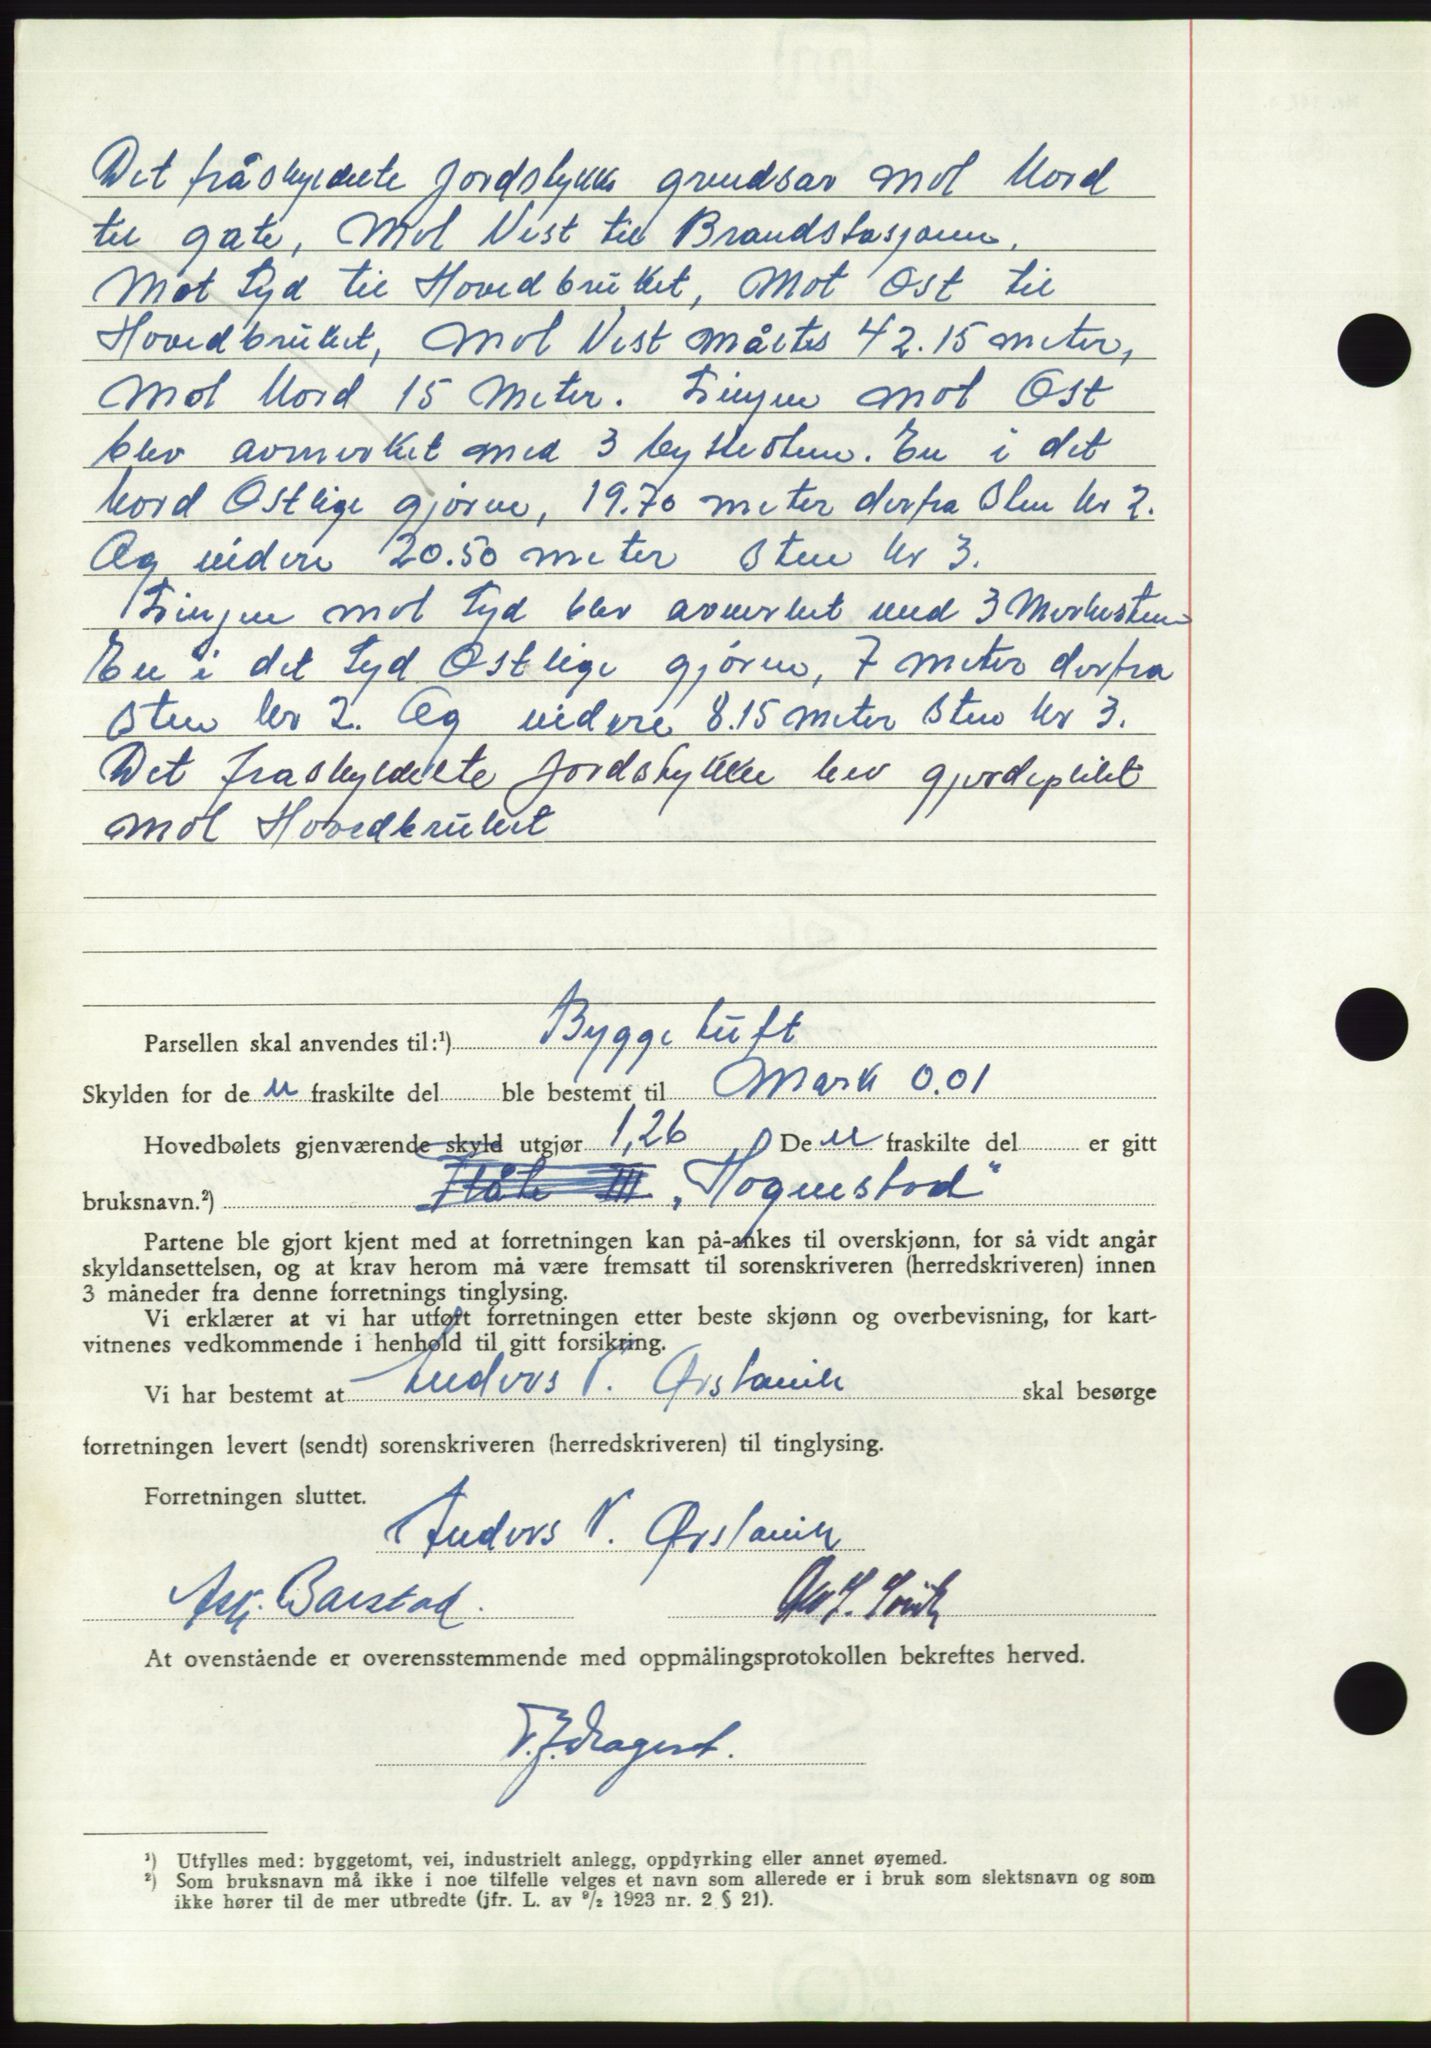 Det fråskyldelte Jordstykke grendsar mot Nord
til gate, Mot Vest til Brandstasjonen.
Mot Syd til Hovedbruket, Mot Ost til
Hovedbruket, Mot Vest måltes 42.15 meter,
Mot Nord 15 Meter. Linjen mot Ost
blev avmerket med 3 byttesten. En i det
Nord Ostlige gjörne, 19.70 meter derfra Sten Nr 2.
Og videre 20.50 meter Sten Nr 3.
Linjen mot Syd blev avmerket med 3 Merkesten
En i det Syd Ostlige gjörne, 7 meter derfra
Sten Nr 2. Og videre 8.15 meter Sten Nr 3.
Det fraskyldelte Jordstykke hev gjerdeplikt
mot Hovedbruket
Parsellen skal anvendes til:¹) Byggetuft
Skylden for de n fraskilte del ble bestemt til Mark 0.01
Hovedbølets gjenværende skyld utgjør 1,26 De n fraskilte del er gitt
bruksnavn.²) Flåte III „Hognestad"
Partene ble gjort kjent med at forretningen kan på-ankes til overskjønn, for så vidt angår
skyldansettelsen, og at krav herom må være fremsatt til sorenskriveren (herredskriveren) innen
3 måneder fra denne forretnings tinglysing.
Vi erklærer at vi har utført forretningen etter beste skjønn og overbevisning, for kart-
vitnenes vedkommende i henhold til gitt forsikring.
Vi har bestemt at Anders V. Ørstavik skal besørge
forretningen levert (sendt) sorenskriveren (herredskriveren) til tinglysing.
Forretningen sluttet.
Anders V. Ørstavik
Ask. Barstad.
At ovenstående er overensstemmende med oppmålingsprotokollen bekreftes herved.
¹) Utfylles med: byggetomt, vei, industrielt anlegg, oppdyrking eller annet øyemed.
²) Som bruksnavn må ikke i noe tilfelle velges et navn som allerede er i bruk som slektsnavn og som
ikke hører til de mer utbredte (jfr. L. av ⁹/₂ 1923 nr. 2 § 21).